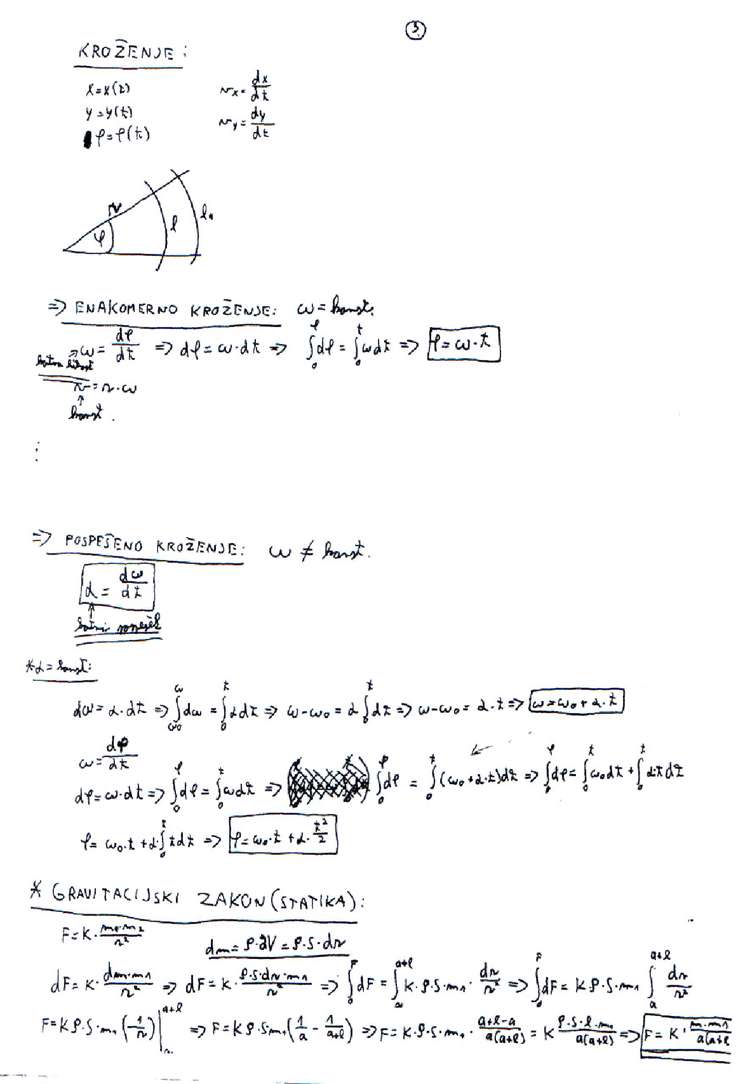 3.
KROŽENJE:
x=x(t) v_x = dx/dt
y=y(t) v_y = dy/dt
φ=φ(t)
r φ l l₁
=> ENAKOMERNO KROŽENJE: ω = konst.
kotna hitrost → ω = dφ/dt => dφ = ω·dt => ∫₀^φ dφ = ∫₀^t ω dt => φ = ω·t
v = r·ω
↑
konst.
⋮
=> POSPEŠENO KROŽENJE: ω ≠ konst.
α = dω/dt
↑
kotni pospešek
*α = konst:
dω = α·dt => ∫_ω₀^ω dω = ∫₀^t α dt => ω-ω₀ = α ∫₀^t dt => ω-ω₀ = α·t => ω = ω₀ + α·t
ω = dφ/dt
dφ = ω·dt => ∫₀^φ dφ = ∫₀^t ω dt => ∫₀^φ dφ = ∫₀^t (ω₀+α·t)dt => ∫₀^φ dφ = ∫₀^t ω₀ dt + ∫₀^t α·t dt
φ = ω₀·t + α ∫₀^t t dt => φ = ω₀·t + α·t²/2
* GRAVITACIJSKI ZAKON (STATIKA):
F = K·m₁·m₂/r²
dm = ρ·dV = ρ·S·dr
dF = K·dm·m₁/r² => dF = K·ρ·S·dr·m₁/r² => ∫₀^F dF = ∫_a^(a+l) K·ρ·S·m₁·dr/r² => ∫₀^F dF = Kρ·S·m₁ ∫_a^(a+l) dr/r²
F = Kρ·S·m₁(-1/r)|_a^(a+l) => F = Kρ·Sm₁(1/a - 1/(a+l)) => F = K·ρ·S·m₁·(a+l-a)/(a(a+l)) = K ρ·S·l·m₁/(a(a+l)) => F = K·m·m₁/(a(a+l